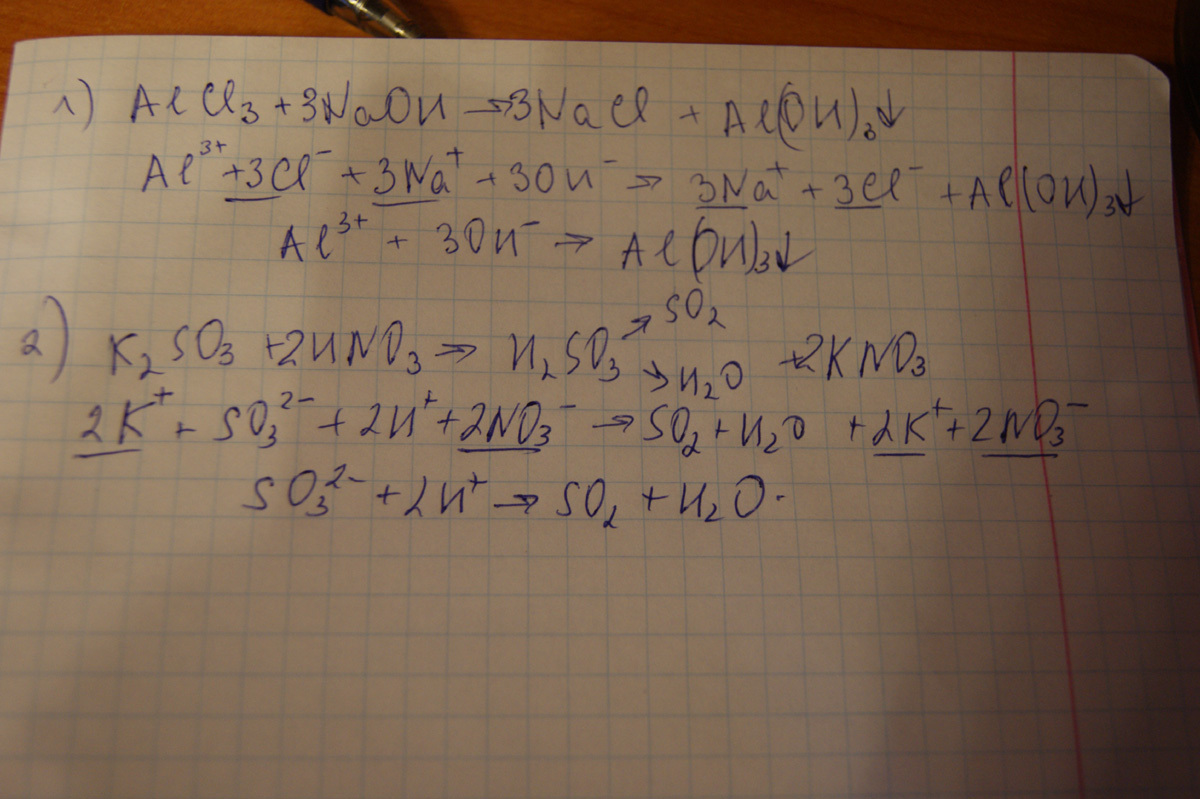 1) AlCl₃ + 3NaOH → 3NaCl + Al(OH)₃↓
Al³⁺ + 3Cl⁻ + 3Na⁺ + 3OH⁻ → 3Na⁺ + 3Cl⁻ + Al(OH)₃↓
Al³⁺ + 3OH⁻ → Al(OH)₃↓
2) K₂SO₃ + 2HNO₃ → H₂SO₃ ↗ SO₂ ↘ H₂O + 2KNO₃
2K⁺ + SO₃²⁻ + 2H⁺ + 2NO₃⁻ → SO₂ + H₂O + 2K⁺ + 2NO₃⁻
SO₃²⁻ + 2H⁺ → SO₂ + H₂O.